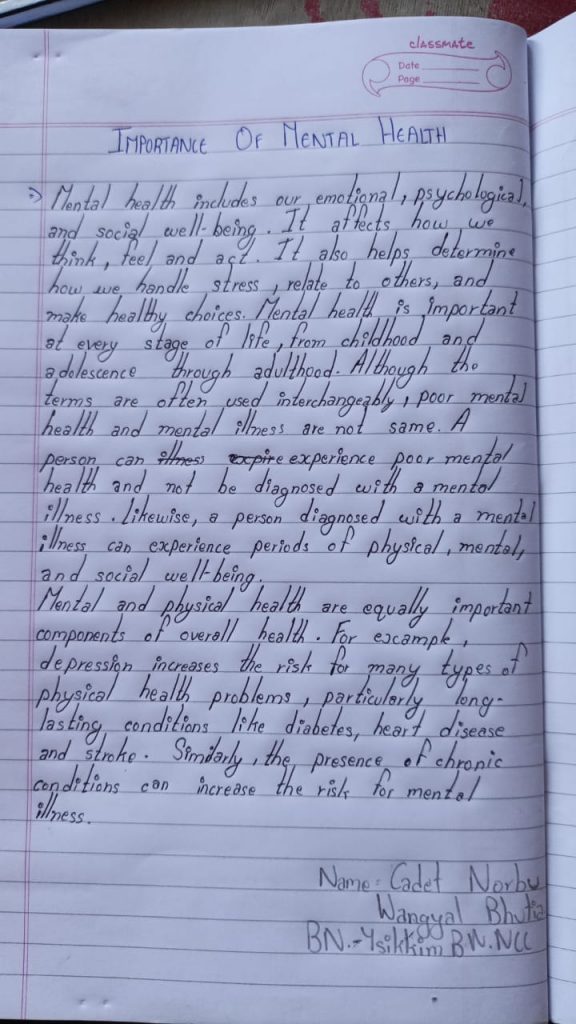 classmate
Date
Page
IMPORTANCE OF MENTAL HEALTH
⇒ Mental health includes our emotional, psychological,
and social well-being. It affects how we
think, feel and act. It also helps determine
how we handle stress, relate to others, and
make healthy choices. Mental health is important
at every stage of life, from childhood and
adolescence through adulthood. Although the
terms are often used interchangeably, poor mental
health and mental illness are not same. A
person can illness expire experience poor mental
health and not be diagnosed with a mental
illness. Likewise, a person diagnosed with a mental
illness can experience periods of physical, mental,
and social well-being.
Mental and physical health are equally important
components of overall health. For excample,
depression increases the risk for many types of
physical health problems, particularly long-
lasting conditions like diabetes, heart disease
and stroke. Similarly, the presence of chronic
conditions can increase the risk for mental
illness.
Name: Cadet Norbu
Wangyal Bhutia
BN.- BN.NCC